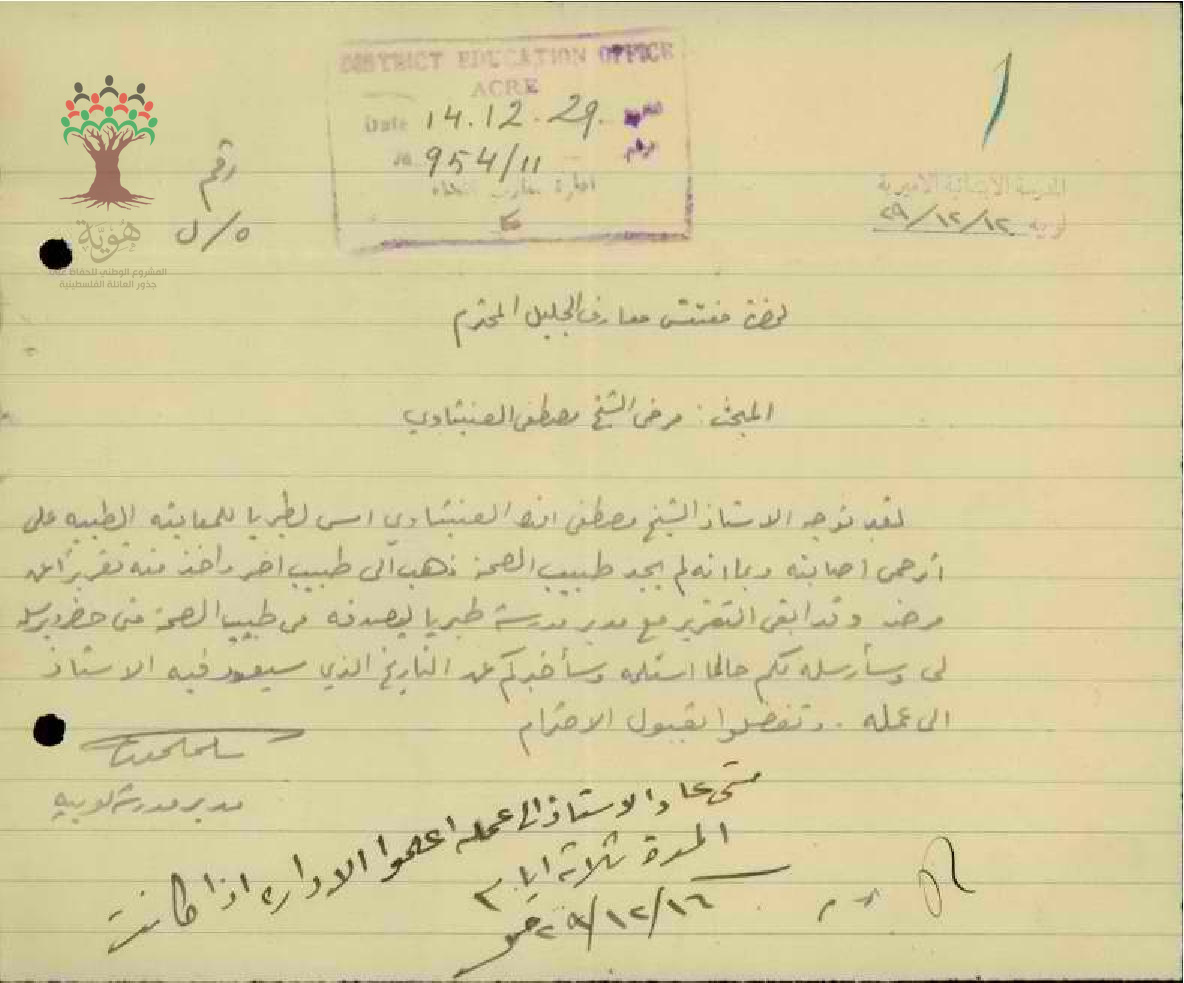 DISTRICT EDUCATION OFFICE
ACRE
Date 14.12.29.
No 954/11
رقم
ل/٥
المدرسة الابتدائية الاميرية
لوبيه ٢٩/١٢/١٢
هُويّة
المشروع الوطني للحفاظ على
جذور العائلة الفلسطينية
لحضرة مفتش معارف الجليل المحترم
المبحث: مرض الشيخ مصطفى العنبتاوي
لقد توجه الاستاذ الشيخ مصطفى العنبتاوي امس لطبريا للمعاينه الطبيه على
أثر حمى اصابته وبما انه لم يجد طبيب الصحة ذهب الى طبيب اخر واخذ منه تقريرا عن
مرضه وقد ابقى التقرير مع مدير مدرسة طبريا ليصدقه من طبيب الصحة متى حضر ويرسله
لي وسأرسله لكم حالما استلمه وسأخبركم عن التاريخ الذي سيعود فيه الاستاذ
الى عمله. وتفضلوا بقبول الاحترام
مدير مدرسة لوبيه
متى عاد الاستاذ الى عمله اعلموا الاداره اذا كانت
المدة ثلاثة ايام
٢٩/١٢/١٦